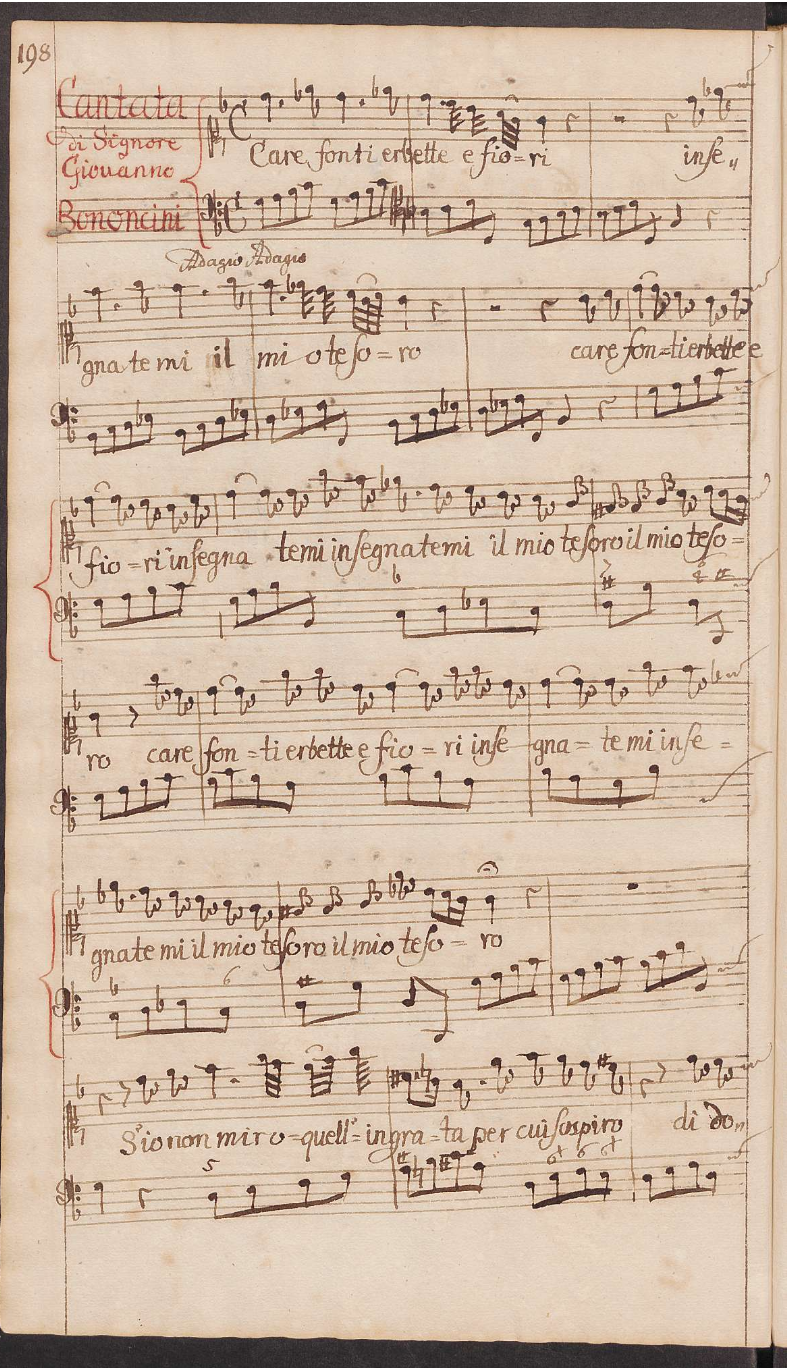 198
Cantata
di Signore
Giouanno
Bononcini
Care fonti erbette e fio=ri inse„
Adagio Adagio
gna te mi il mi o te so = ro care fon=ti erbette e
fio =ri insegna temi insegnatemi il mio tesoro il mio teso=
ro care fon =ti erbette e fio = ri inse gna = te mi inse =
gnate mi il mio tesoro il mio teso = ro
6
S'io non miro =quell'=ingra=ta per cui sospiro di don
5 6+ 6 6+